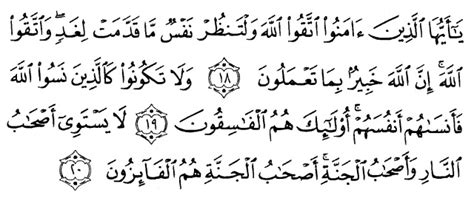 يَٰٓأَيُّهَا ٱلَّذِينَ ءَامَنُوا۟ ٱتَّقُوا۟ ٱللَّهَ وَلْتَنظُرْ نَفْسٌ مَّا قَدَّمَتْ لِغَدٍ ۖ وَٱتَّقُوا۟
ٱللَّهَ ۚ إِنَّ ٱللَّهَ خَبِيرٌۢ بِمَا تَعْمَلُونَ ﴿١٨﴾ وَلَا تَكُونُوا۟ كَٱلَّذِينَ نَسُوا۟ ٱللَّهَ
فَأَنسَىٰهُمْ أَنفُسَهُمْ ۚ أُو۟لَٰٓئِكَ هُمُ ٱلْفَٰسِقُونَ ﴿١٩﴾ لَا يَسْتَوِىٓ أَصْحَٰبُ
ٱلنَّارِ وَأَصْحَٰبُ ٱلْجَنَّةِ ۚ أَصْحَٰبُ ٱلْجَنَّةِ هُمُ ٱلْفَآئِزُونَ ﴿٢٠﴾